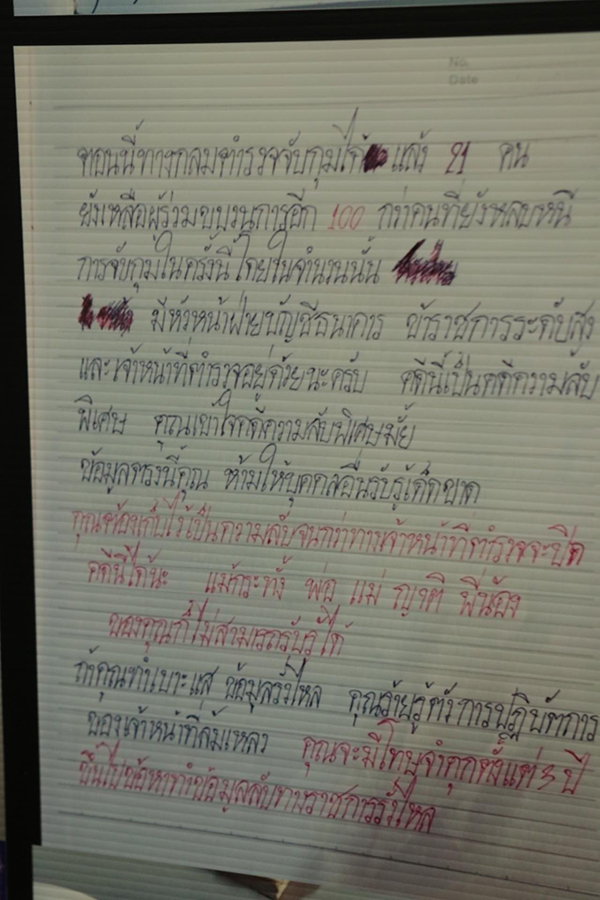 No.
Date
ตอนนี้ทางกลมตำรวจจับกุมได้ แล้ว 21 คน
ยังเหลือผู้ร่วมขบวนการอีก 100 กว่าคนที่ยังหลบหนี
การจับกุมในครั้งนี้ โดยในจำนวนนั้น
มีหัวหน้าฝ่ายบัญชีธนาคาร ข้าราชการระดับสูง
และเจ้าหน้าที่ตำรวจอยู่ด้วยนะครับ คดีนี้เป็นคดีความลับ
พิเศษ คุณเข้าใจคดีความลับพิเศษมั้ย
ข้อมูลตรงนี้คุณ ห้ามให้บุคคลอื่นรับรู้เด็ดขาด
คุณต้องเก็บไว้เป็นความลับจนกว่าทางเจ้าหน้าที่ตำรวจจะปิด
คดีนี้ได้นะ แม้กระทั้ง พ่อ แม่ ญาติ พี่น้อง
ของคุณก็ไม่สามารถรับรู้ได้
ถ้าคุณทำเบาะแส ข้อมูลรั่วไหล คุณร้ายรู้ตัวการปฏิบัทการ
ของเจ้าหน้าที่ล้มเหลว คุณจะมีโทษจำคุกตั้งแต่ 3 ปี
ขึ้นไปข้อหาทำข้อมูลลับทางราชการรั่วไหล